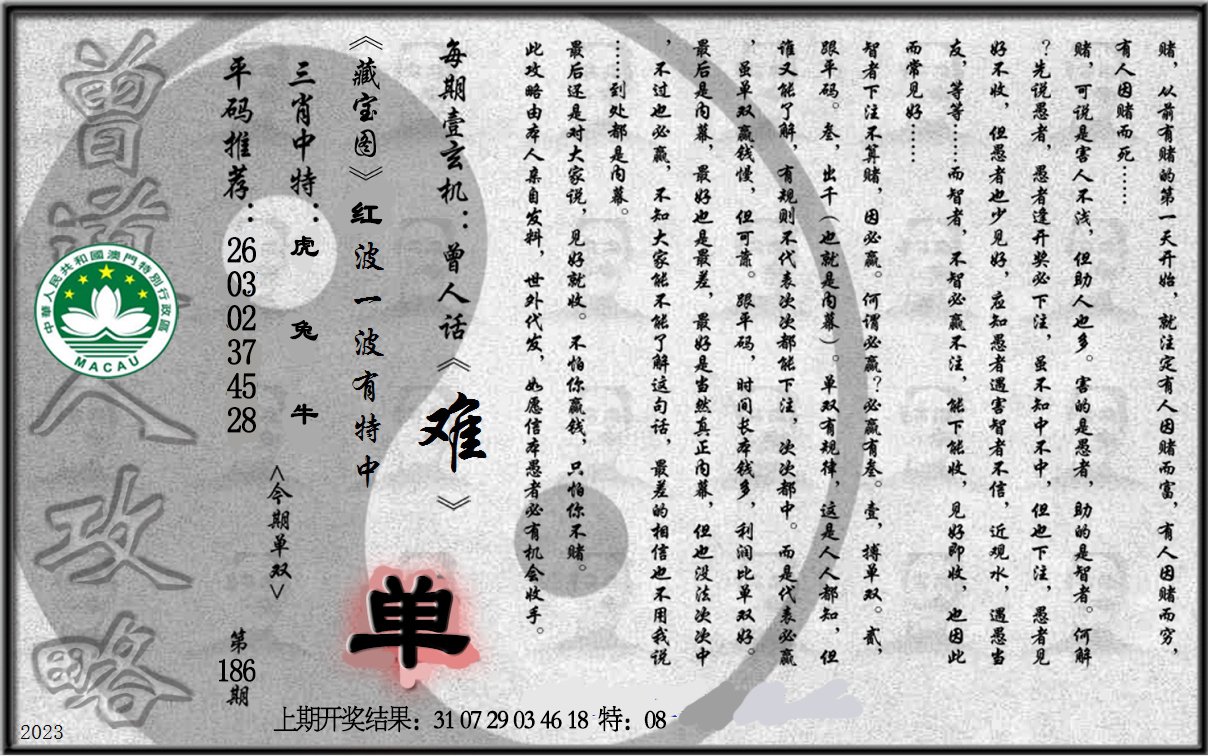 赌，从前有赌的第一天开始，就注定有人因赌而富，有人因赌而穷，
有人因赌而死……
赌，可说是害人不浅，但助人也多。害的是愚者，助的是智者。何解
？先说愚者，愚者逢开奖必下注，虽不知中不中，但也下注，愚者见
好不收，但愚者也少见好，应知愚者遇害智者不信，近观水，遇愚当
友，等等……而智者，不智必赢不注，能下能收，见好即收，也因此
而常见好……
智者下注不算赌，因必赢。何谓必赢？必赢有叁。壹，搏单双。贰，
跟平码。叁，出千（也就是内幕）。单双有规律，这是人人都知，但
谁又能了解，有规则不代表次次都能下注，次次都中。而是代表必赢
，虽单双赢钱慢，但可靠。跟平码，时间长本钱多，利润比单双好。
最后是内幕，最好也是最差，最好是当然真正内幕，但也没法次次中
，不过也必赢，不知大家能不能了解这句话，最差的相信也不用我说
……到处都是内幕。
最后还是对大家说，见好就收。不怕你赢钱，只怕你不赌。
此攻略由本人亲自发料，世外代发，如愿信本愚者必有机会收手。
每期壹玄机：曾人话《难》
《藏宝图》红波一波有特中
单
三肖中特：虎 兔 牛
<今期单双>
平码推荐：26 03 02 37 45 28
第186期
曾道人攻略
中華人民共和國澳門特別行政區
MACAU
上期开奖结果：31 07 29 03 46 18 特：08
2023